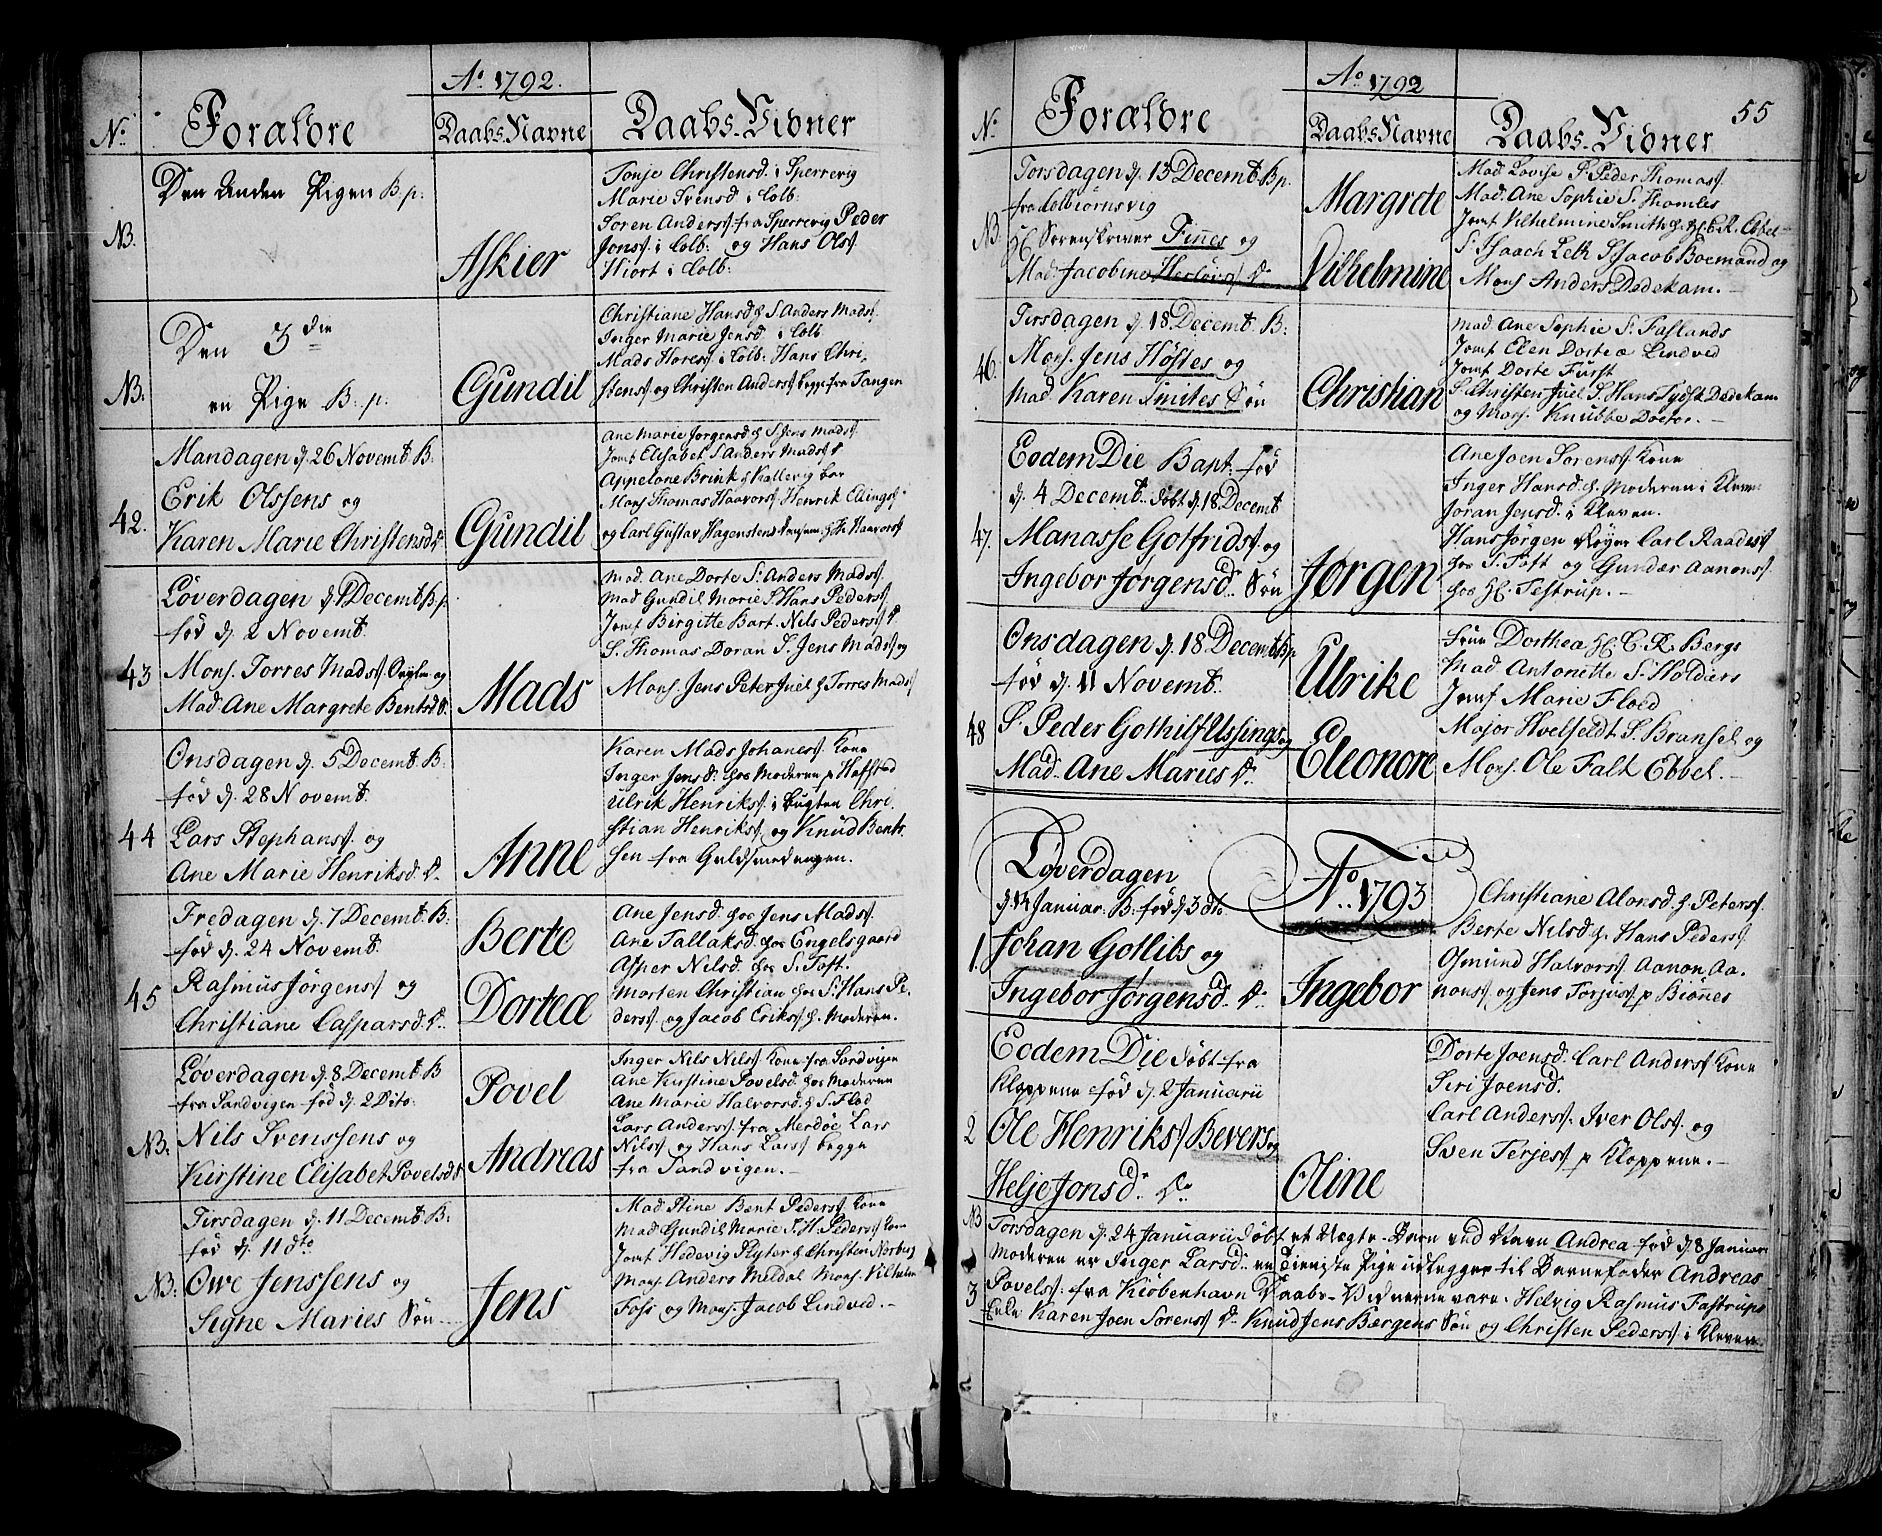 Aº 1792.
Nº Forældre Daabs Navne Daabs-Vidner
Den Anden Pigen B p:
NB.
Askier
Tonje Christensd. i Sperrevig
Marie Svensd i Colb:
Søren Anderss fra Sperrevig Peder
Jonss i Colb: og Hans Olss
Hiort i Colb:
Den 3die
en Pige B. p:
NB.
Gundil
Christiane Hansd hos S. Anders Madss
Inger Marie Jensd i Colb
Mads Horess i Colb: Hans Chri,
stenss og Christen Anderss begge fra Tangen
Mandagen d. 26 Novembr. B.
42. Erik Olssens og
Karen Marie Christensd D.
Gundil
Ane Marie Jørgensd hos S. Jens Madss
Jomf Elisabet S Anders Madss D
Appelone Brink hos Kallevig bor
Mons Thomas Haavorss Henrik Ellingss
og Carl Gustav Hagensten hos Hr. Haavorss
Løverdagen d. 1 Decemb. B. p
fød d. 2 Novemb.
43 Mons. Torres Madss og
Mad. Ane Margrete Bentsd S.
Mads
Mad. Ane Dorte Sr. Anders Madss
Mad Gundil Marie S. Hans Pederss
Jomf Birgitte Bart. Nils Pederss D.
S. Thomas Doran S. Jens Madss og
Mons. Jens Peter Juel hos Torres Madss
Onsdagen d. 5 Decemb. B.
fød d. 28 Novemb.
44 Lars Stephanss. og
Ane Marie Henriksd. D.
Anne
Karen Mads Johaness. Kone
Inger Jensd. hos Moderen p Haffsted
Ulrik Henrikss. i Bugten Chri,
stian Henrikss, og Knud Bent,
sen fra Guldsmedengen.
Fredagen d. 7 Decemb. B:
fød d. 24 Novemb.
45 Rasmus Jørgenss og
Christiane Caspersd. D.
Berte
Dorteæ
Ane Jensd. hos Jens Madss.
Ane Tallaksd. hos Engelsgaard
Asper Nilsd. hos S. Toft.
Morten Christian hos Sr. Hans Pe,
derss. og Jacob Erikss hos Moderen.
Løverdagen d. 8 Decemb. B
fra Sandvigen fød d. 2 Dito.
NB. Nils Svenssens og
Kirstine Elisabet Povelsd S
Povel
Andreas
Inger Nils Nilss Kone fra Sandvigen
Ane Kirstine Povelsd. hos Moderen
Ane Marie Halvorsd. hos S. Flod
Lars Anderss. fra Merdøe Lars
Nilss og Hans Larss begge
fra Sandvigen.
Tirsdagen d. 11 Decemb. B.
fød d. 11 dito
NB. Owe Jenssens og
Signe Maries Søn
Jens
Mad. Stine Bent Pederss Kone
Mad Gundil Marie S. H. Pederss Kone
Jomf Hedevig Plyter hos Christen Norberg
Mons. Anders Meldal Mons. Vilhelm
Foss og Mons. Jacob Lindved.
Aº 1792
55
Nº Forældre Daabs Navne Daabs-Vidner
Torsdagen d. 13 Decemb. B p.
fra Colbiørnsvig
NB. Hr. Sorenskriver Finnes og
Mad. Jacobine Herløvs D.
Margrete
Vilhelmine
Mad Lovise S. Peder Thomass.
Mad. Ane Sophie S. Thomles
Jomf Vilhelmine Smith hos Hr. C. R. Ebbel
S. Isaach Leth S. Jacob Boemand og
Mons Anders Dedekam.
Tirsdagen d. 18 Decemb. B:
46. Mons. Jens Høstes og
Mad. Karen Smites Søn
Christian
Mad Ane Sophie S. Faslands
Jomf Elen Dorteæ Lindved
Jomf Dorte Furst
S. Christen Juel S. Hans Tydsk Dedekam
og Mons. Knubbe Doctor.
Eodem Die Bapt. fød
d. 4 Decemb. døbt d. 18 Decemb
47. Manasse Gotfridss. og
Ingebor Jørgensd. Søn
Jørgen
Ane Joen Sørenss Kone
Inger Hansd. hos Moderen i Kleven
Joran Jensd. i Kleven.
Hans Jørgen Carl Raadess
hos S. Toft og Gunder Aanonss.
hos Hr. Testrup.
Onsdagen d. 18 Decemb. B p
fød d. 11 Novemb.
48 S. Peder Gothilf Ussings og
Mad. Ane Maries D.
Ulrike
Eleonore
Frue Dorthea Hr. C. R. Bergs
Mad Antonette S. Holdiers
Jomf Marie Floed
Major Hvelfeldt S. Bransel og
Mons. Ole Falk Ebbel.
Aº. 1793
Løverdagen
d. 12 Januar. B. fød d. 3 dto
1. Johan Gotlibs og
Ingebor Jørgensd. D.
Ingebor
Christiane Alonsd hos Peterss.
Berte Nilsd hos Hans Pederss.
Osmund Halvorss Aanon Aa,
nons. og Jens Torjuss p Biønes
Eodem Die døbt fra
Kloppene fød d. 2 Januarii
2 Ole Henrikss Bevers og
Helje Jonsd. D.
Oline
Dorte Joensd. Carl Anderss Kone
Siri Joensd.
Carl Anderss. Iver Olss. og
Sven Terjess p Kloppene.
NB Torsdagen d. 24 Januarii døbt et Uægte-Barn ved Navn Andrea fød d. 8 Januar
Moderen er Inger Larsd. en Tieneste Pige udlegger til Barnefader Andreas
3 Povelss. fra Kiøbenhavn Daabs-Vidnerne vare. Helvig Rasmus Fastrups
Karen Joen Sørenss D. Knud Jens Børgens Søn og Christen Pederss i Kleven.